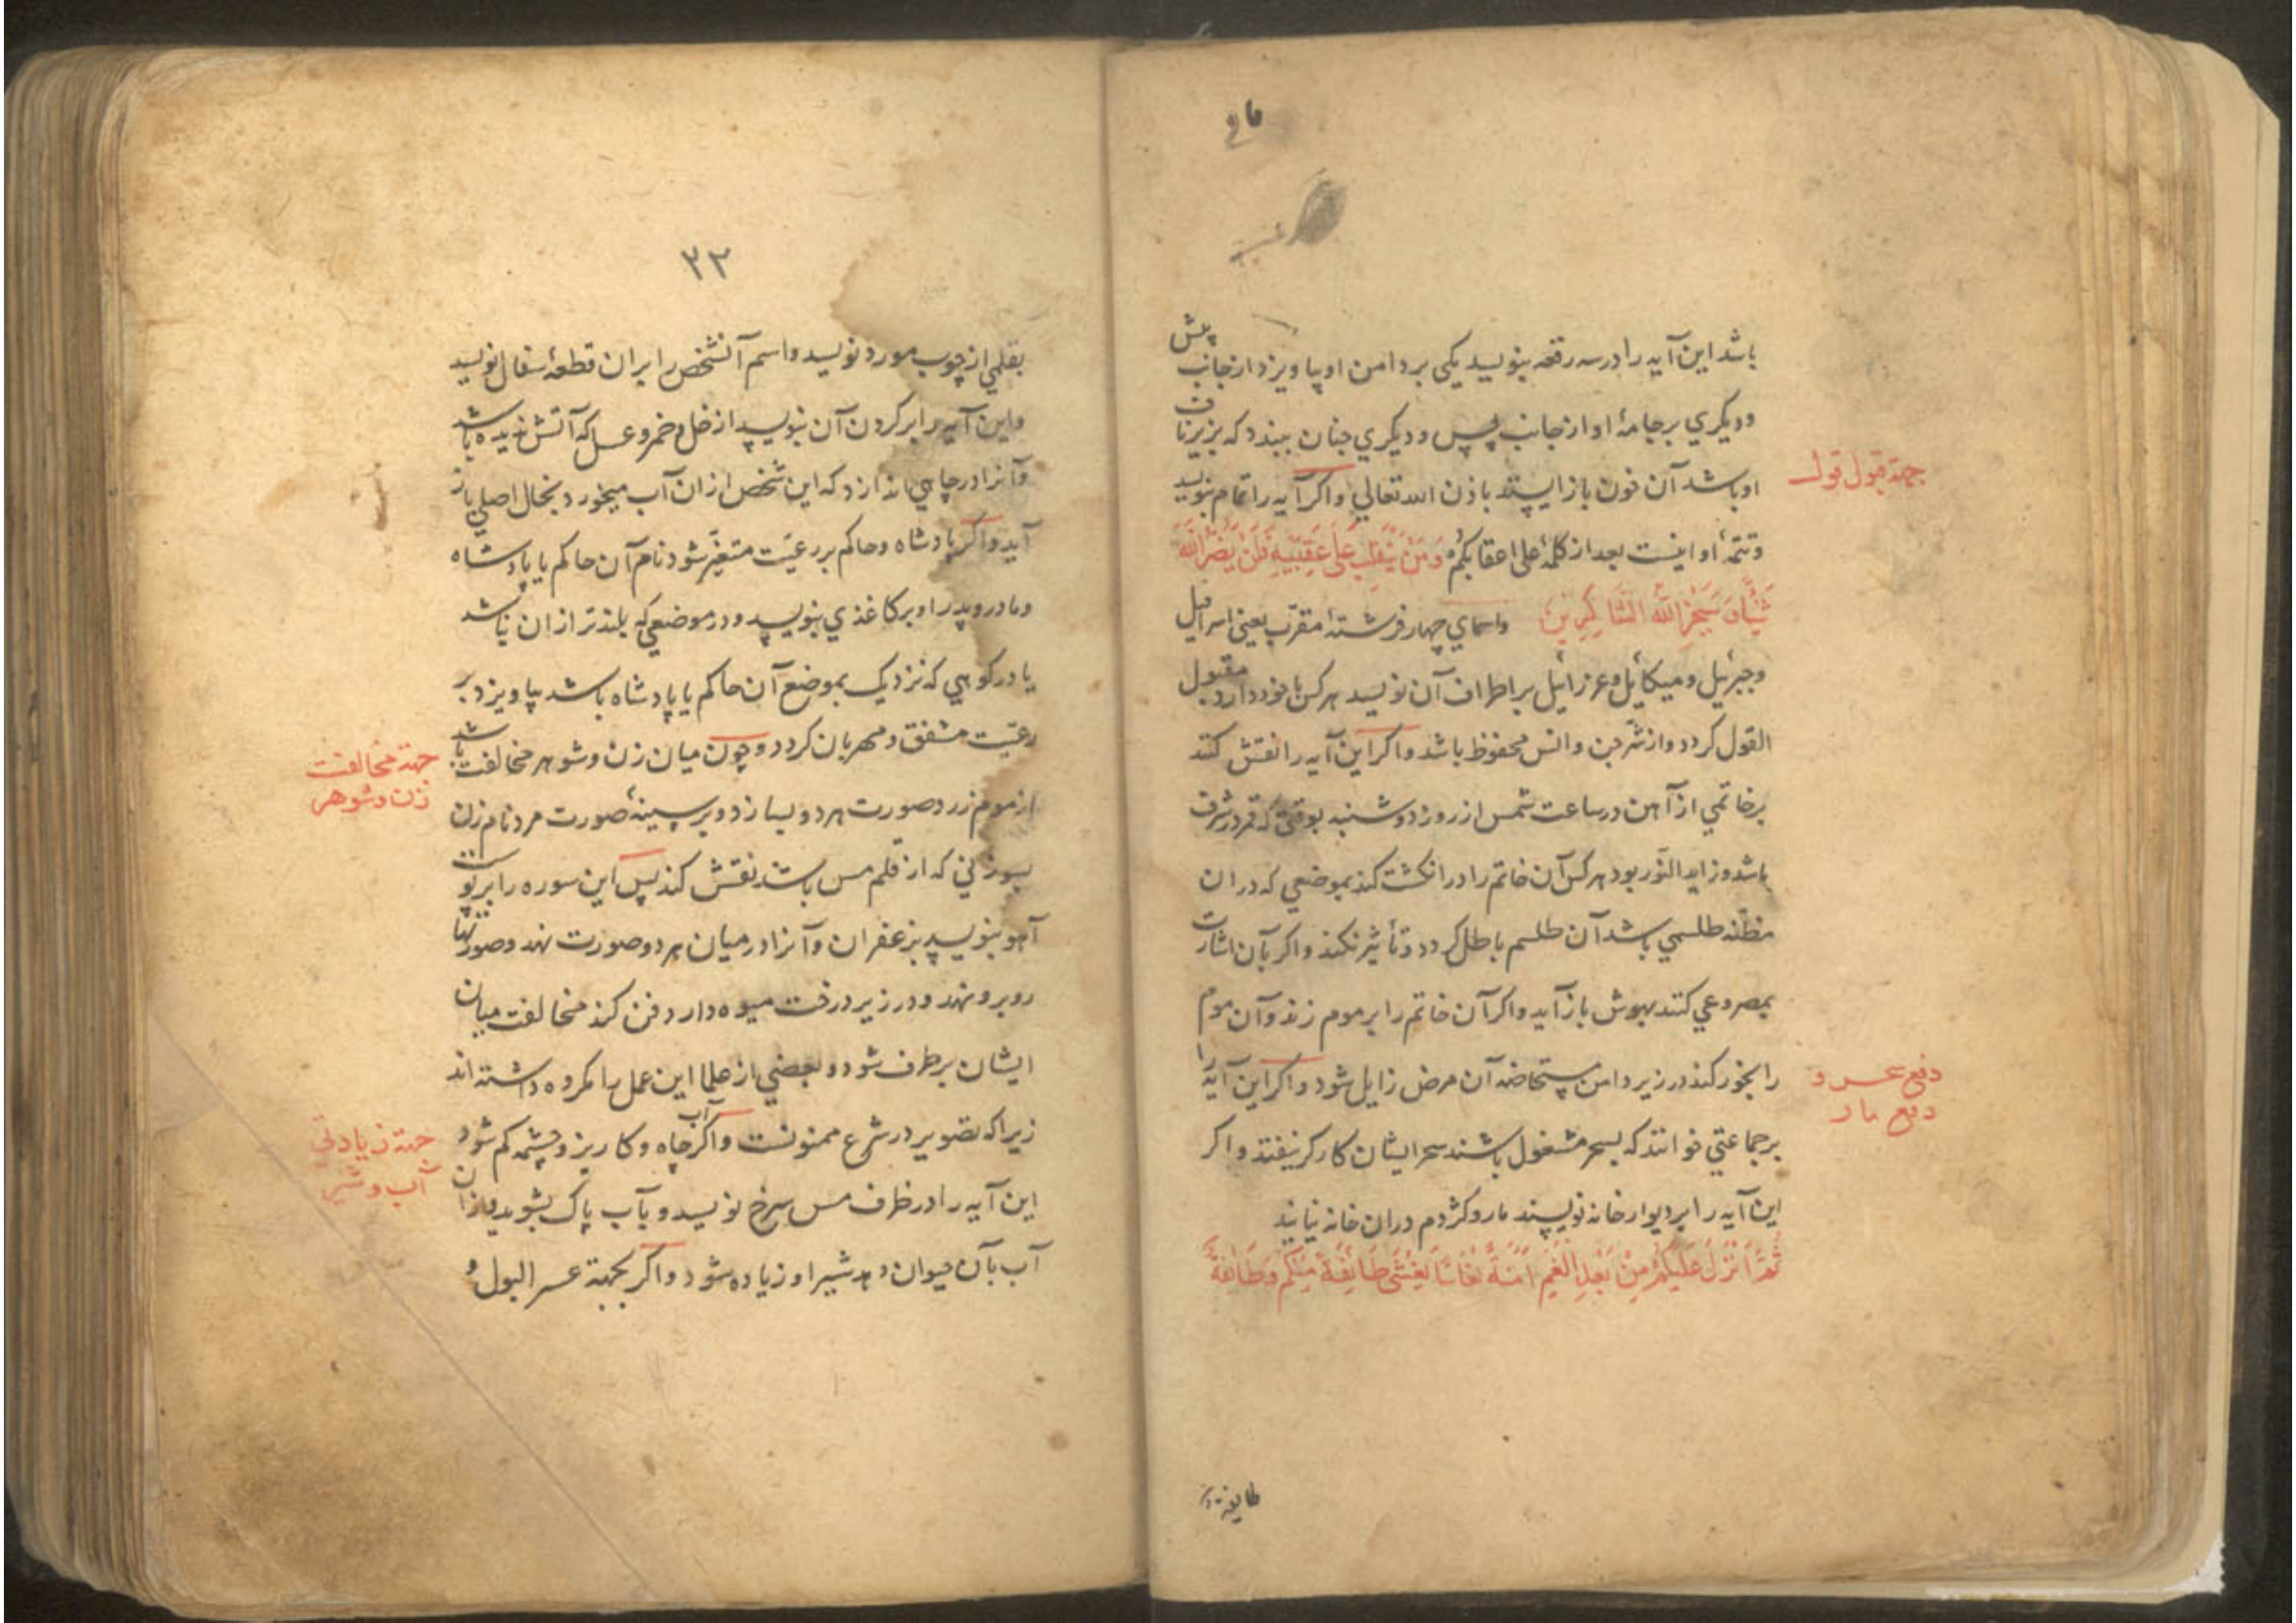 باشد این آیه را در سه رقعه بنویسد یکی بر دامن او بیاویزد از جانب پیش
و دیکري بر جامهٔ او از جانب پس و دیکري چنان ببندد که بزیر ناف
او باشد آن خون باز ایستد باذن الله تعالي و اکر آیه را تمام بنویسد
و تتمهٔ او اینست بعد از کلمهٔ علی اعقابکُم وَمَنْ یَنْقَلِبْ عَلَى عَقِبَيْهِ فَلَنْ يَضُرَّ اللهَ
شَيْئًا وَسَيَجْزِي اللَّهُ الشَّاكِرِينَ و اسماي چهار فرشتهٔ مقرّب یعنی اسرافیل
و جبرئیل و میکائیل و عزرائیل بر اطراف آن نویسد هر کس با خود دارد مقبول
القول کردد و از شرّ جن و انس محفوظ باشد و اکر این آیه را نقش کنند
بر خاتمي از آهن در ساعت شمس از روز دوشنبه بوقتی که قمر در شرف
باشد و زاید النّور بود هر کس آن خاتم را در انکشت کند بموضعي که در ان
مظنّه طلسمي باشد آن طلسم باطل کردد و تأثیر نکند و اکر بآن اشارت
بمصروعي کنند بهوش باز آید و اکر آن خاتم را بر موم زند و آن موم
را بخور کند در زیر دامن مستحاضه آن مرض زایل شود و اکر این آیه را
بر جماعتي خوانند که بسحر مشغول باشند سحر ایشان کارکر نیفتد و اکر
این آیه را بر دیوار خانه نویسند مار و کژدم در ان خانه نیایند
ثُمَّ اَنْزَلَ عَلَيْكُمْ مِنْ بَعْدِ الْغَمِّ اَمَنَةً نُعَاسًا يَغْشَى طَائِفَةً مِنْكُمْ وَطَائِفَةٌ
جهة قبول قول
دفع سحر و
دفع مار
طایفة
٣٢
بقلمي از چوب مورد نویسد و اسم آنشخص را بران قطعهٔ سفال نویسد
و این آیه را بر کردن آن بنویسد از خل و خمر و عسل که آتش ندیده باشد
و آنرا در چاهي اندازد که این شخص از ان آب میخورد بحال اصلي باز
آید و اکر پادشاه و حاکم بر رعیّت متغیّر شود نام آن حاکم یا پادشاه
و مادر و پدر او بر کاغذي بنویسد و در موضعي که بلندتر از ان نباشد
یا در کوهي که نزدیک بموضع آن حاکم یا پادشاه باشد بیاویزد بر
رعیّت مشفق و مهربان کردد و چون میان زن و شوهر مخالفت باشد
از موم زرد صورت هر دو بسازد و بر سینهٔ صورت مرد نام زن
بسوزني که از قلم مس باشد نقش کند پس این سوره را بر پوست
آهو بنویسد بزعفران و آنرا در میان هر دو صورت نهد و صورتها
روبرو نهد و در زیر درخت میوه دار دفن کند مخالفت میان
ایشان برطرف شود و بعضي از علما این عمل را مکروه داشته اند
زیرا که تصویر در شرع ممنوعست و اکر آب چاه و کاریز و چشمه کم شود
این آیه را در ظرف مس سرخ نویسد و بآب پاک بشوید و از ان
آب بآن حیوان دهد شیر او زیاده شود و اکر بجهة عسر البول و
جهة مخالفت
زن و شوهر
جهة زیادتي
آب و شیر